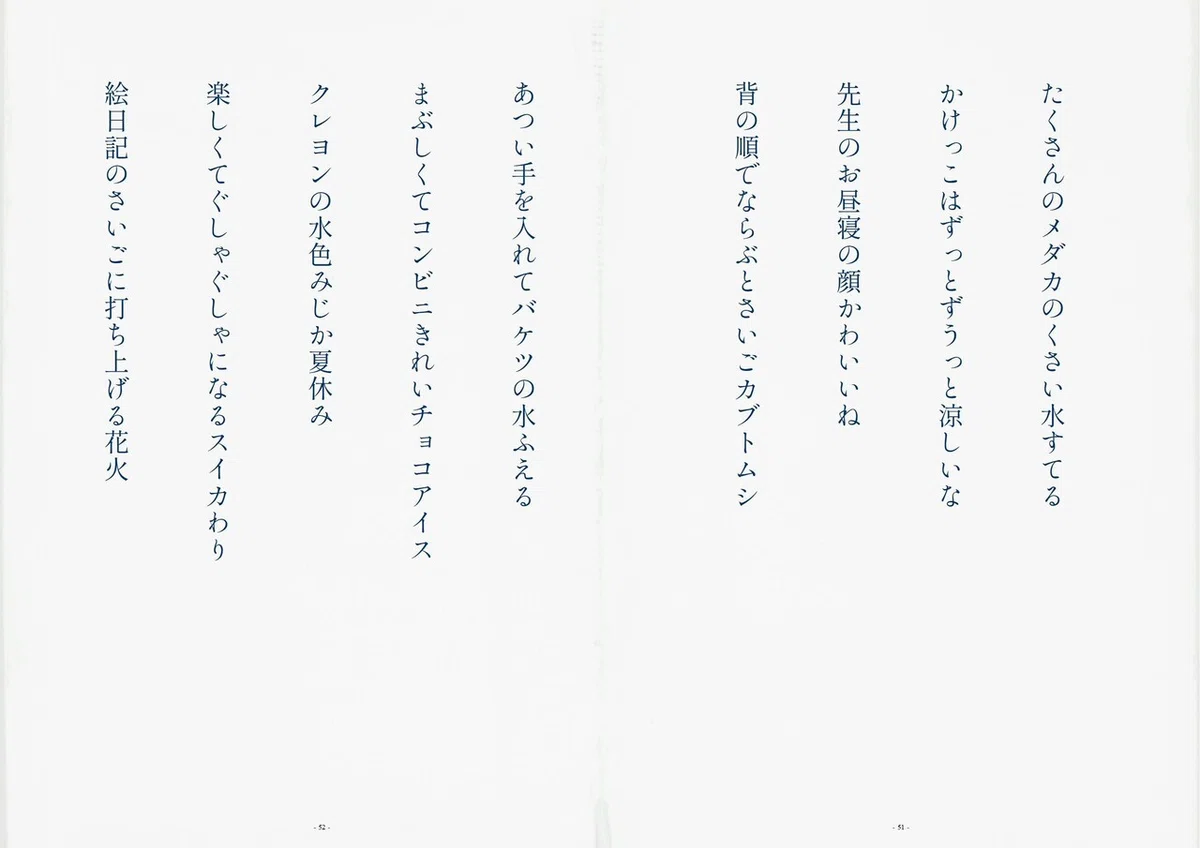 たくさんのメダカのくさい水すてる
かけっこはずっとずうっと涼しいな
先生のお昼寝の顔かわいいね
背の順でならぶとさいごカブトムシ
- 51 -
あつい手を入れてバケツの水ふえる
まぶしくてコンビニきれいチョコアイス
クレヨンの水色みじか夏休み
楽しくてぐしゃぐしゃになるスイカわり
絵日記のさいごに打ち上げる花火
- 52 -